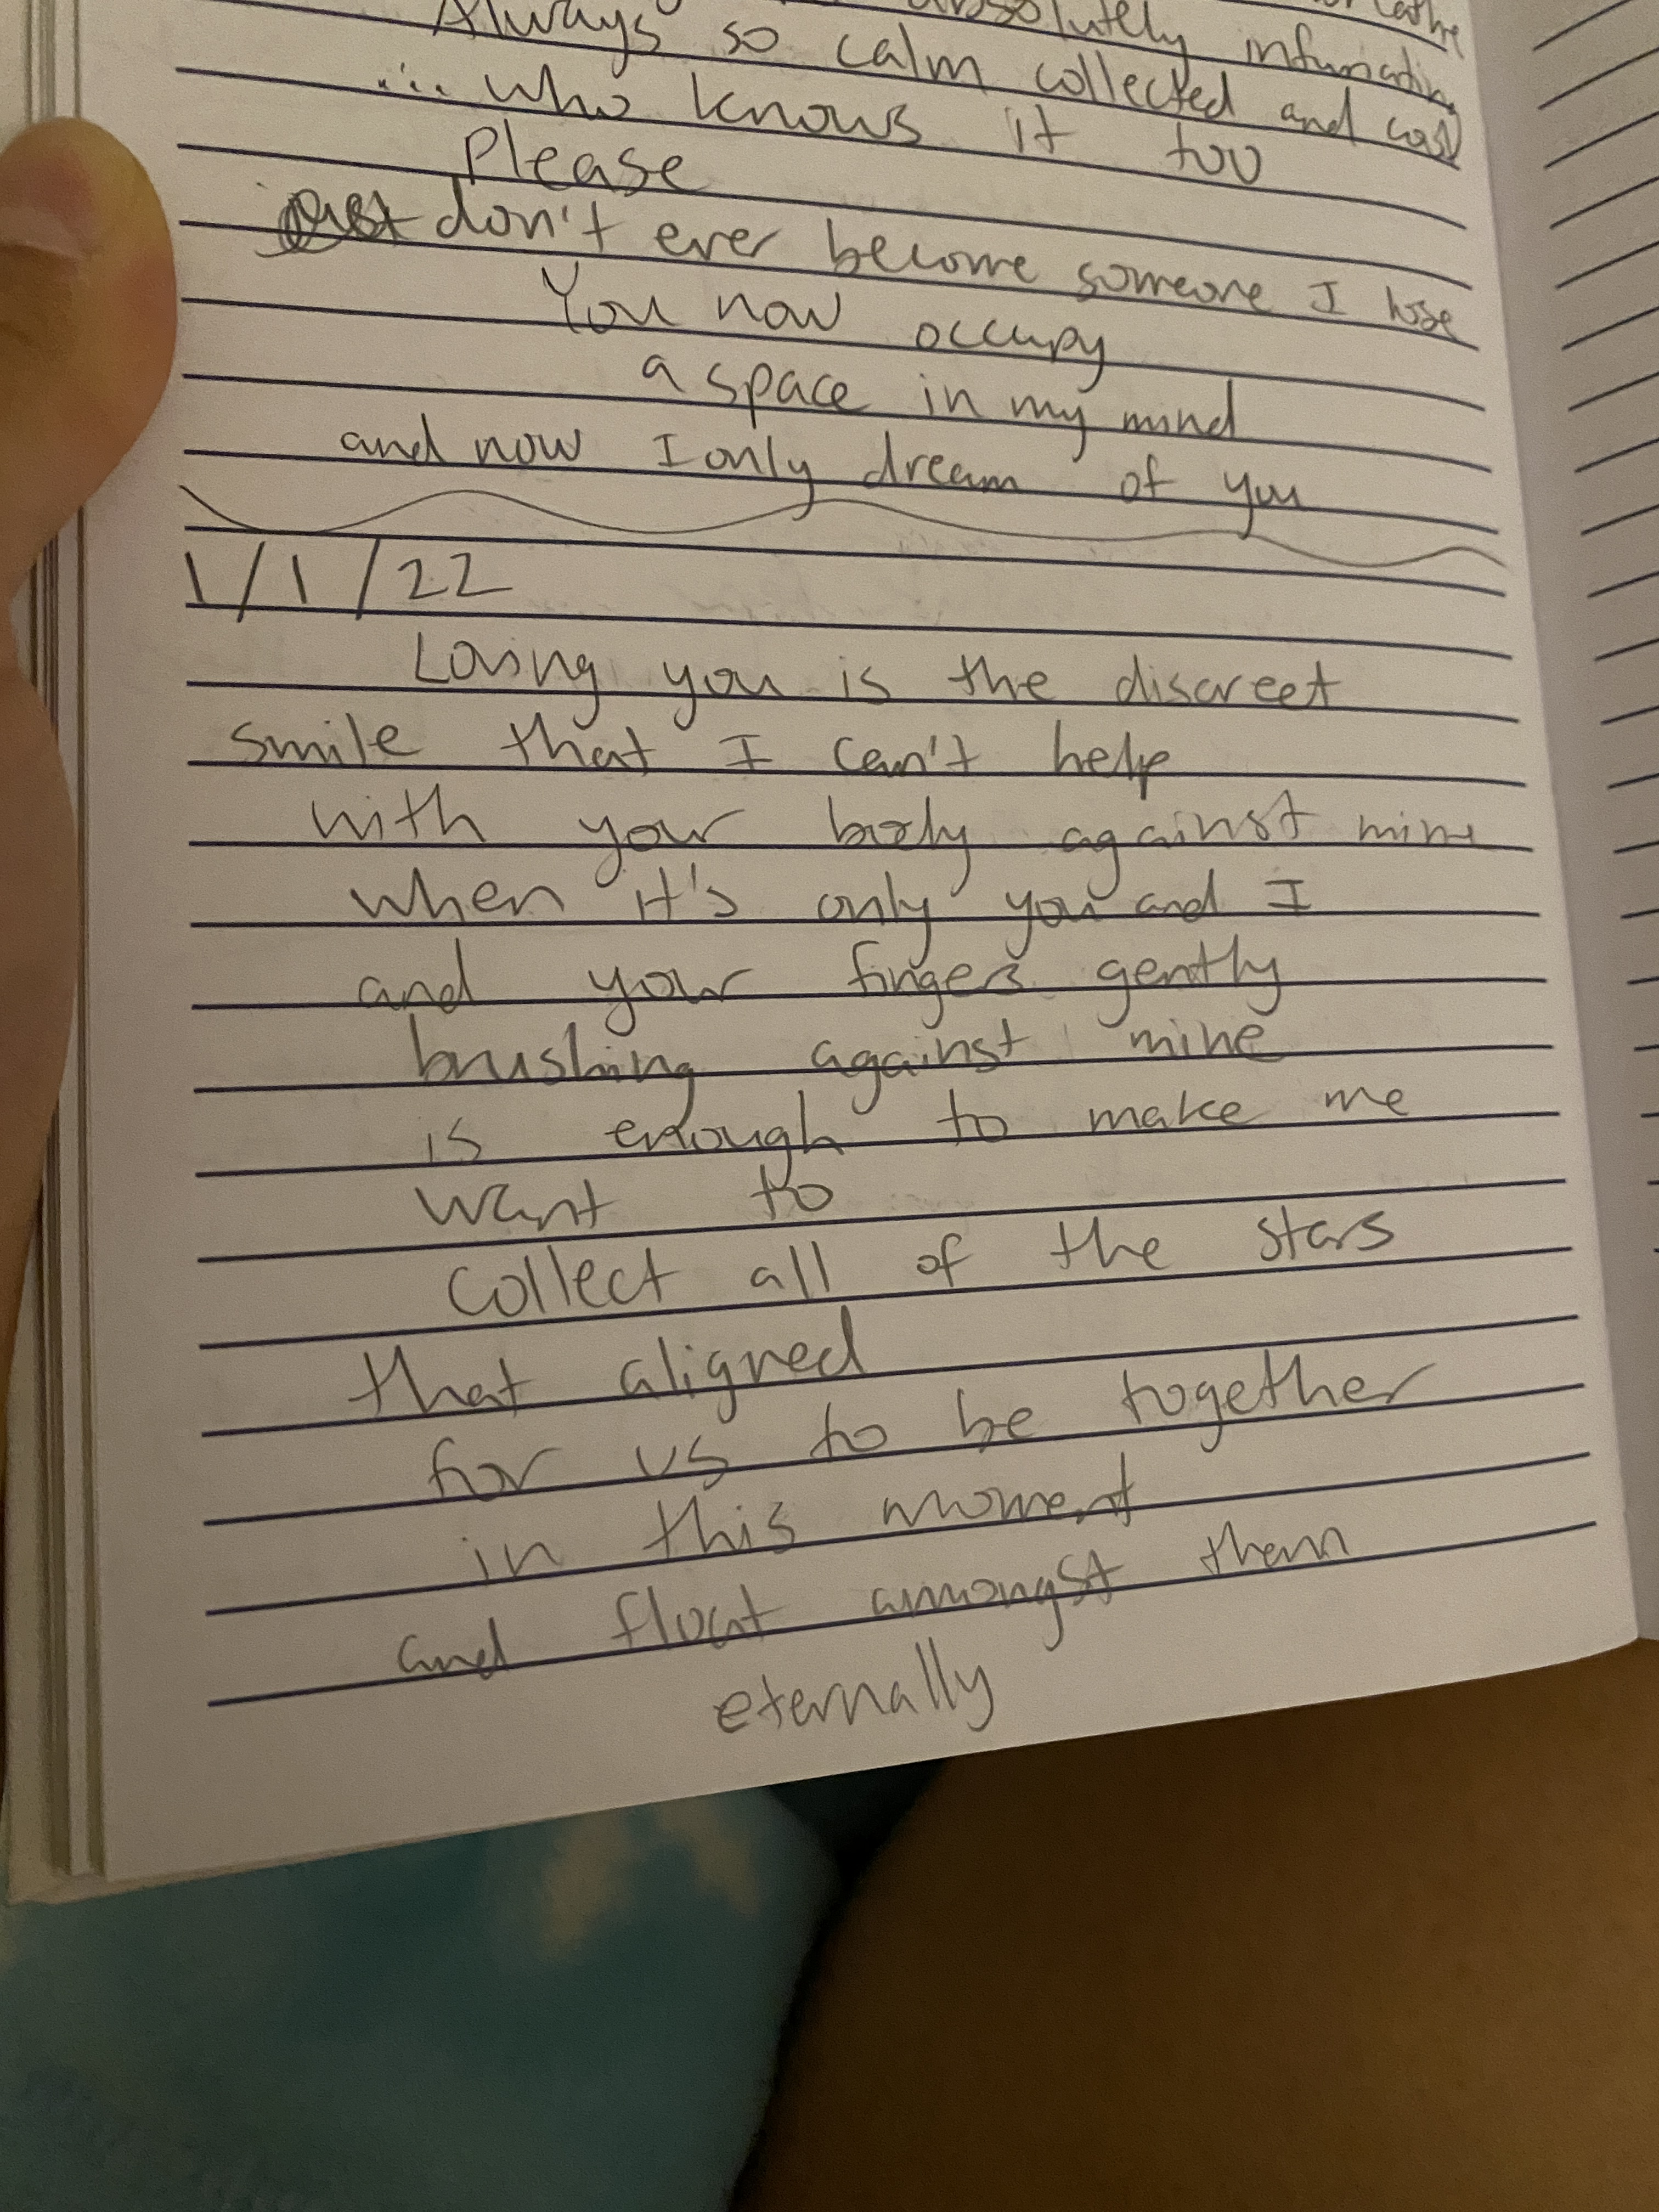 absolutely
Always so calm collected and
... who knows it too
Please
don't ever become someone I lose
You now occupy
a space in my mind
and now I only dream of you
1/1/22
Loving you is the discreet
smile that I can't help
with your body against mine
when it's only you and I
and your fingers gently
brushing against mine
is enough to make me
want to
collect all of the stars
that aligned
for us to be together
in this moment
and float amongst them
eternally